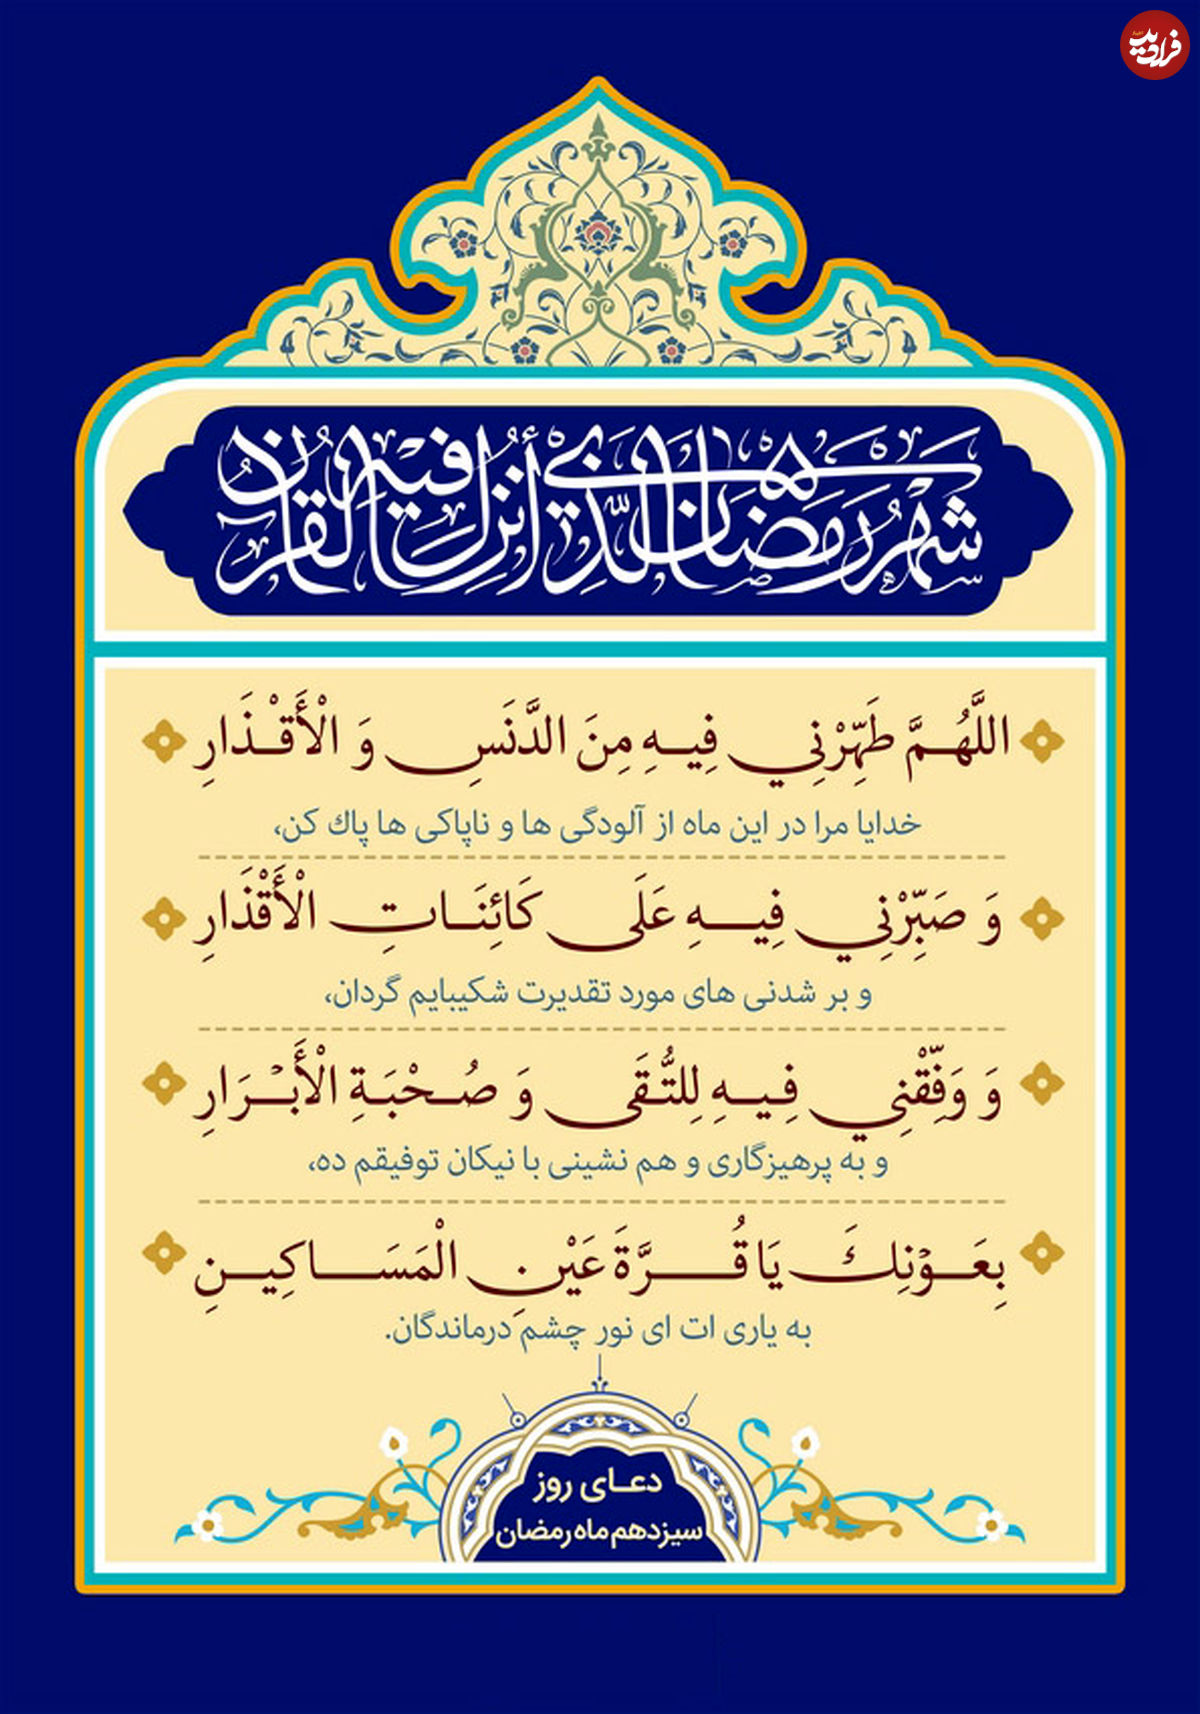 فرادید
شَهرُ رَمَضَانَ الَّذِي أُنزِلَ فِيهِ القُرآنُ
اللَّهُمَّ طَهِّرْنِي فِيهِ مِنَ الدَّنَسِ وَ الْأَقْذَارِ
خدایا مرا در این ماه از آلودگی ها و ناپاکی ها پاك کن،
وَ صَبِّرْنِي فِيهِ عَلَى كَائِنَاتِ الْأَقْذَارِ
و بر شدنی های مورد تقدیرت شکیبایم گردان،
وَ وَفِّقْنِي فِيهِ لِلتُّقَى وَ صُحْبَةِ الْأَبْرَارِ
و به پرهیزگاری و هم نشینی با نیکان توفیقم ده،
بِعَوْنِكَ يَا قُرَّةَ عَيْنِ الْمَسَاكِينِ
به یاری ات ای نور چشم درماندگان.
دعای روز
سیزدهم ماه رمضان